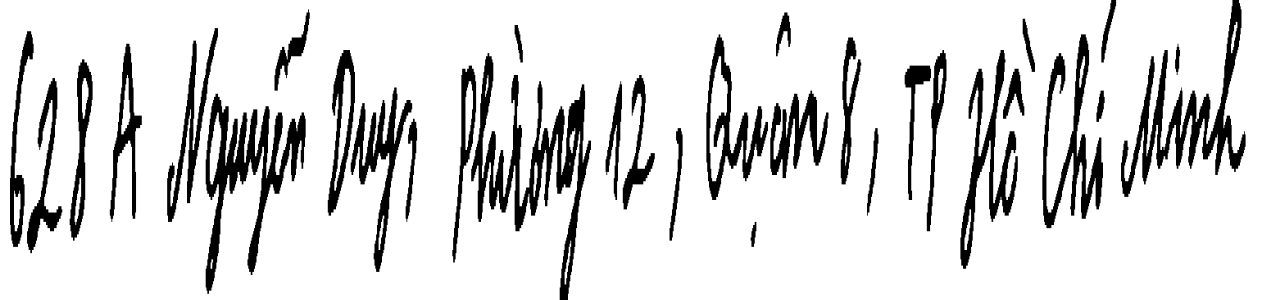 628A Nguyễn Duy, Phường 12, Quận 8, TP Hồ Chí Minh